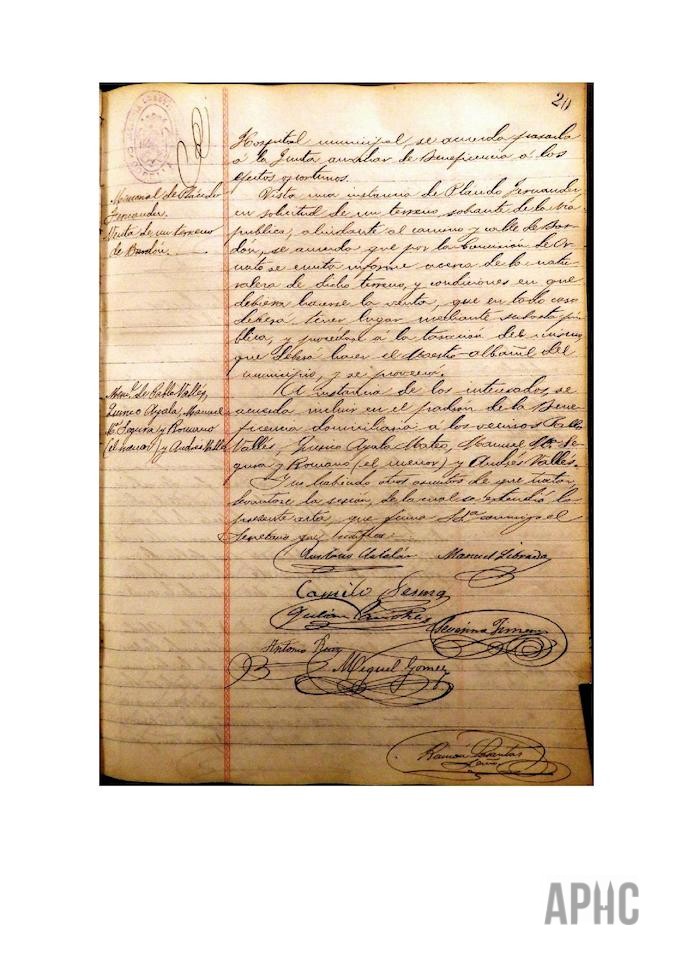 20
Hospital municipal, se acuerda pasarla
á la Junta auxiliar de Beneficencia á los
efectos oportunos.
Memorial de Plácido
Fernander.
Venta de un terreno
de Bardón.
Vista una instancia de Placido Fernander
en solicitud de un terreno sobrante de la via
publica, alindante al camino y calle de Bar-
dón, se acuerda que por la Comisión de Or-
nato se emita informe acerca de la natu-
raleza de dicho terreno, y condiciones en que
debiera hacerse la venta, que en todo caso
deberá tener lugar mediante subasta pú-
blica, y procediase á la tasación del mismo
que deberá hacer el Maestro albañil del
municipio, y se proveerá.
Mem.l de Pablo Vallés,
Quirico Ayala, Manuel
Mª Segura y Romano
(el menor) y Andrés Vallés
A instancia de los interesados se
acuerda incluir en el padrón de la Bene-
ficencia domiciliaria á los vecinos Pablo
Vallés, Quirico Ayala Mateo, Manuel Mª Se-
gura y Romano (el menor) y Andrés Vallés.
Y no habiendo otros asuntos de que tratar
levantose la sesión, de la cual se extendió la
presente acta, que firma S.Sª conmigo el
Secretario que certifico.
Manuel Librada
Camilo
Julián
Severino
Antonio Ruiz
Miguel Gomez
Ramón
APHC